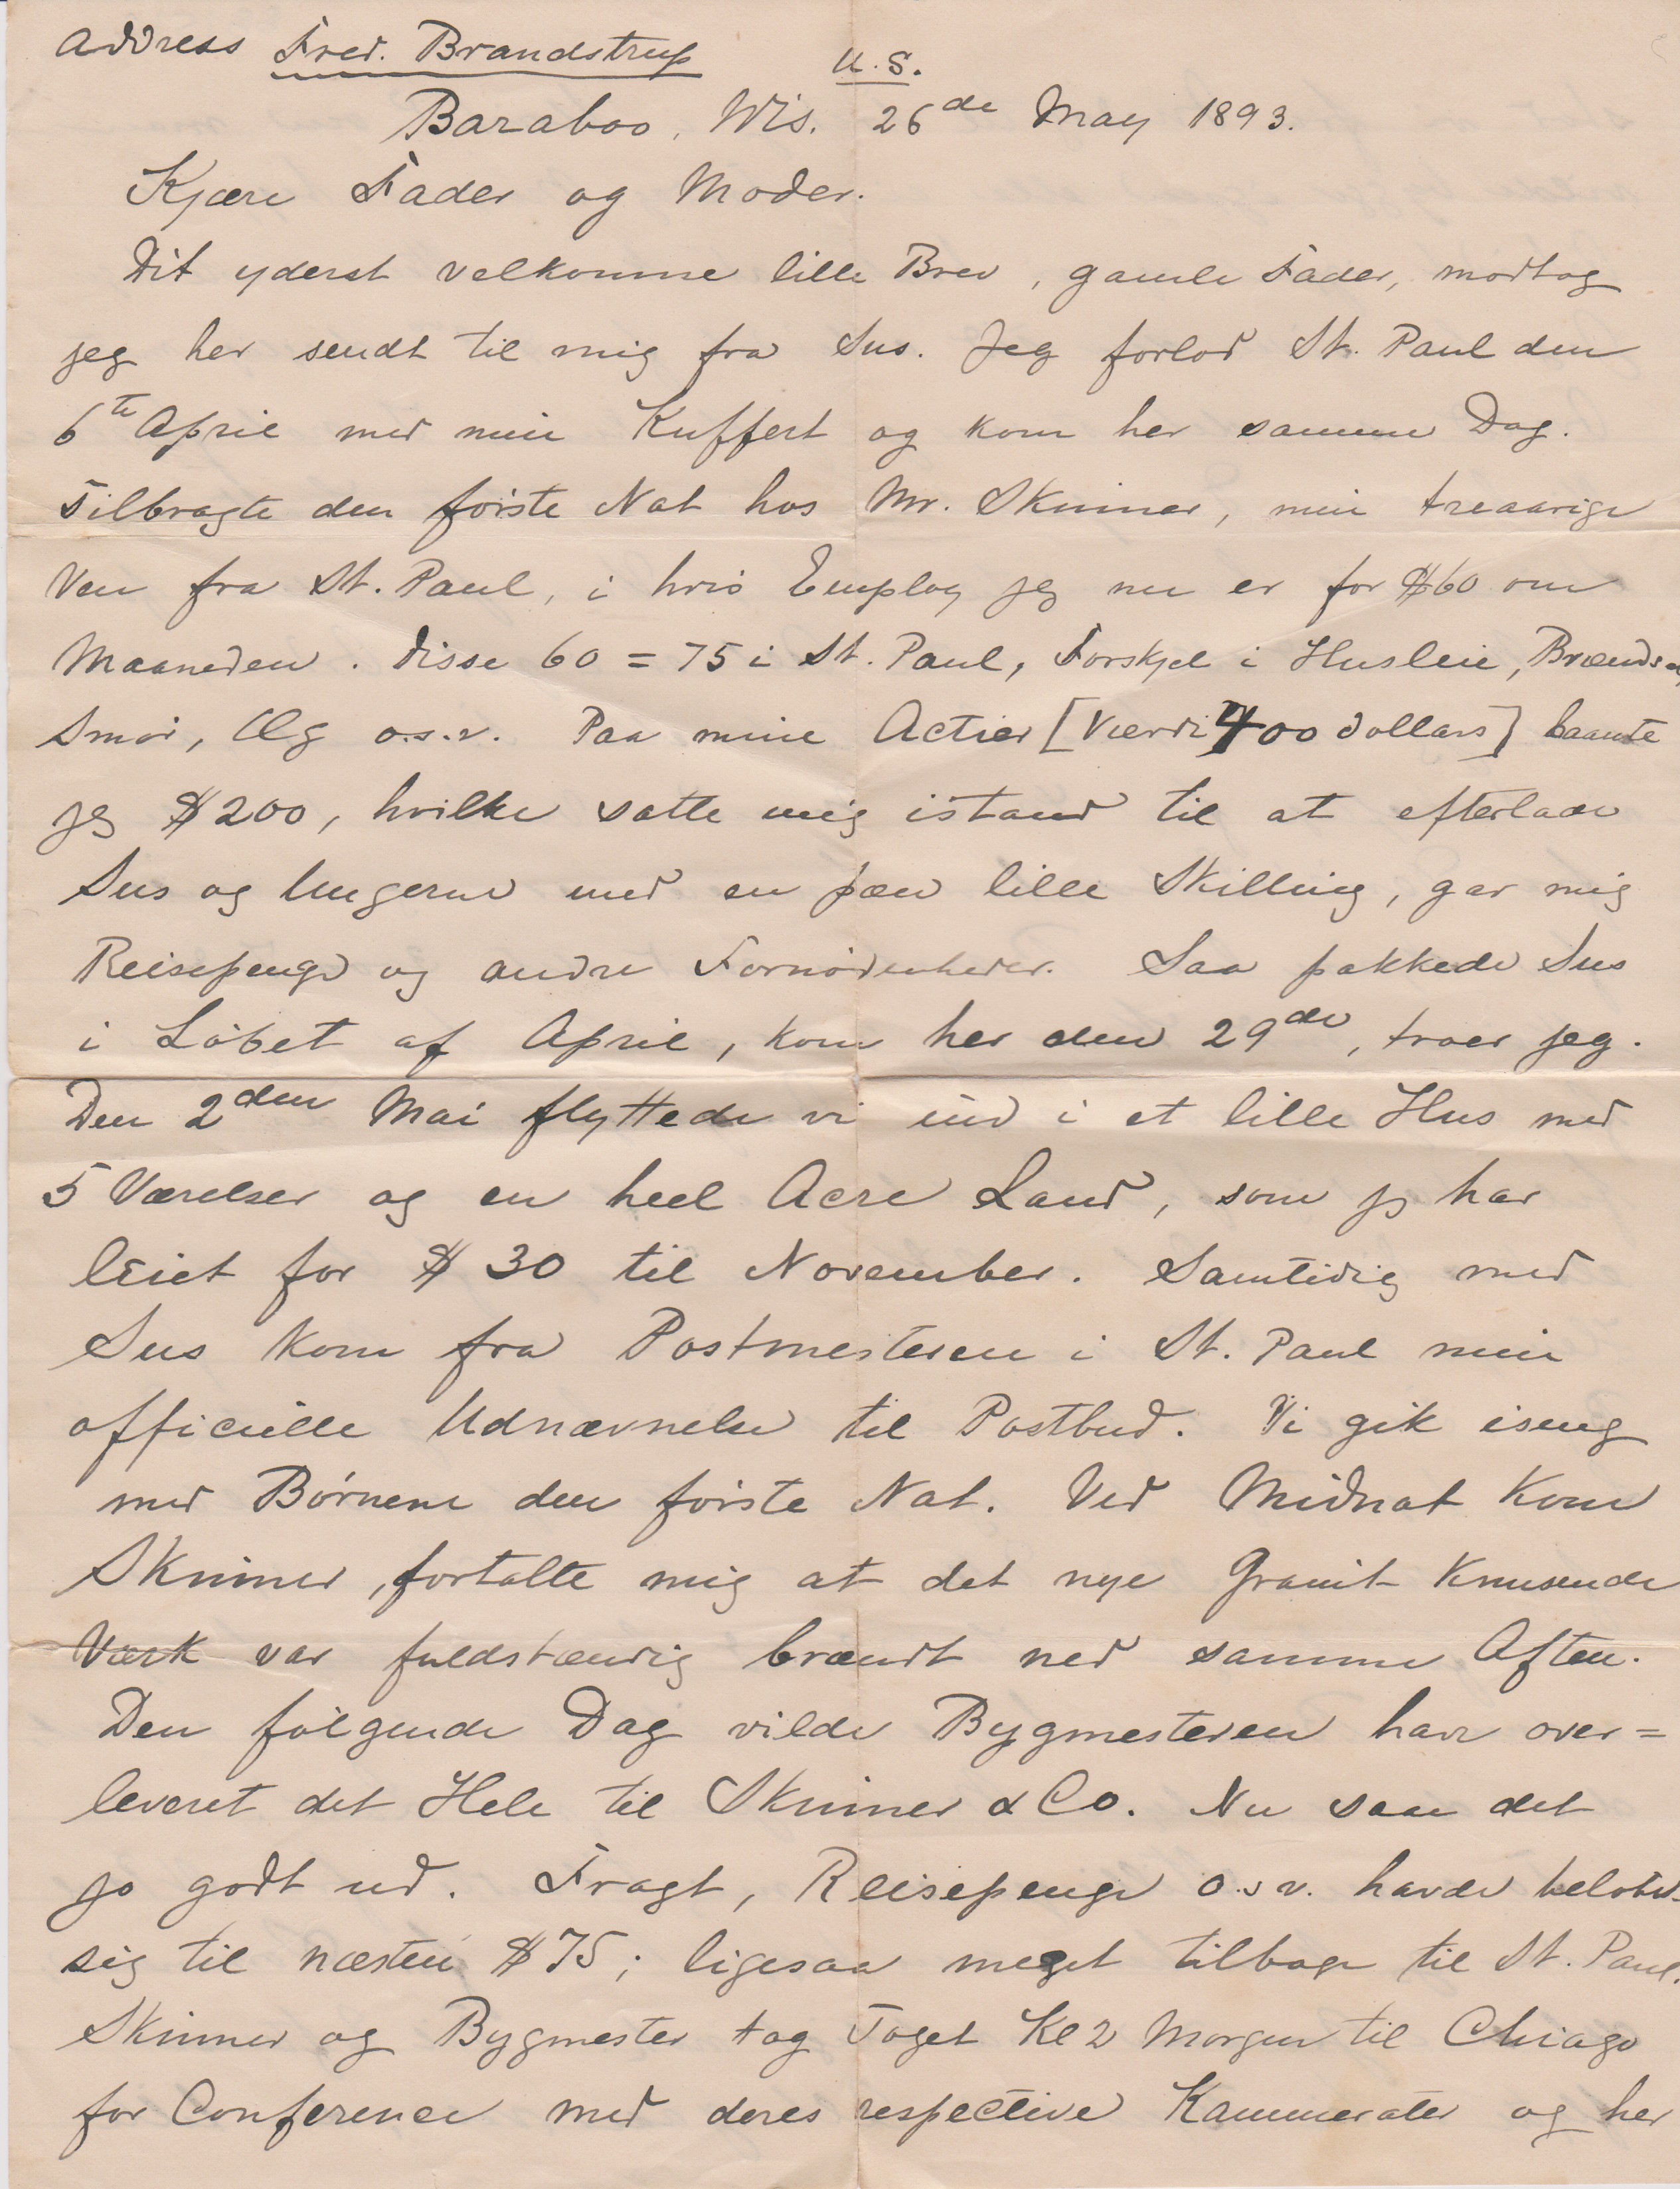 Address Fred. Brandstrup
U.S.
Baraboo, Wis. 26de May 1893.
Kjære Fader og Moder.
Dit yderst velkomne lille Brev, gamle Fader, modtog
jeg her sendt til mig fra Sus. Jeg forlod St. Paul den
6te April med min Kuffert og kom her samme Dag.
Tilbragte den förste Nat hos Mr. Skinner, min treaarige
Ven fra St. Paul, i hvis Employ jeg nu er for $60 om
Maaneden. Disse 60 = 75 i St. Paul, Forskjel i Husleie, Brændsel,
Smör, Æg o.s.v. Paa mine Actier [Værdi 400 dollars] laante
jeg $200, hvilke satte mig istand til at efterlade
Sus og Ungerne med en pæn lille Skilling, gav mig
Reisepenge og andre Fornödenheder. Saa pakkede Sus
i Löbet af April, kom her den 29de, troer jeg.
Den 2den Mai flyttede vi ind i et lille Hus med
5 Værelser og en heel Acre Land, som jeg har
leiet for $30 til November. Samtidig med
Sus kom fra Postmesteren i St. Paul min
officielle Udnævnelse til Postbud. Vi gik iseng
med Börnene den förste Nat. Ved Midnat kom
Skinner, fortalte mig at det nye Granit Knusende
Værk var fuldstændig brændt ned samme Aften.
Den fölgende Dag vilde Bygmesteren have over=
leveret det Hele til Skinner & Co. Nu saae det
jo godt ud. Fragt, Reisepenge o.s.v. havde belöbet
sig til næsten $75; ligesaa meget tilbage til St. Paul.
Skinner og Bygmester tog Toget Kl 2 Morgen til Chiago
for Conference med deres respective Kammerater og her